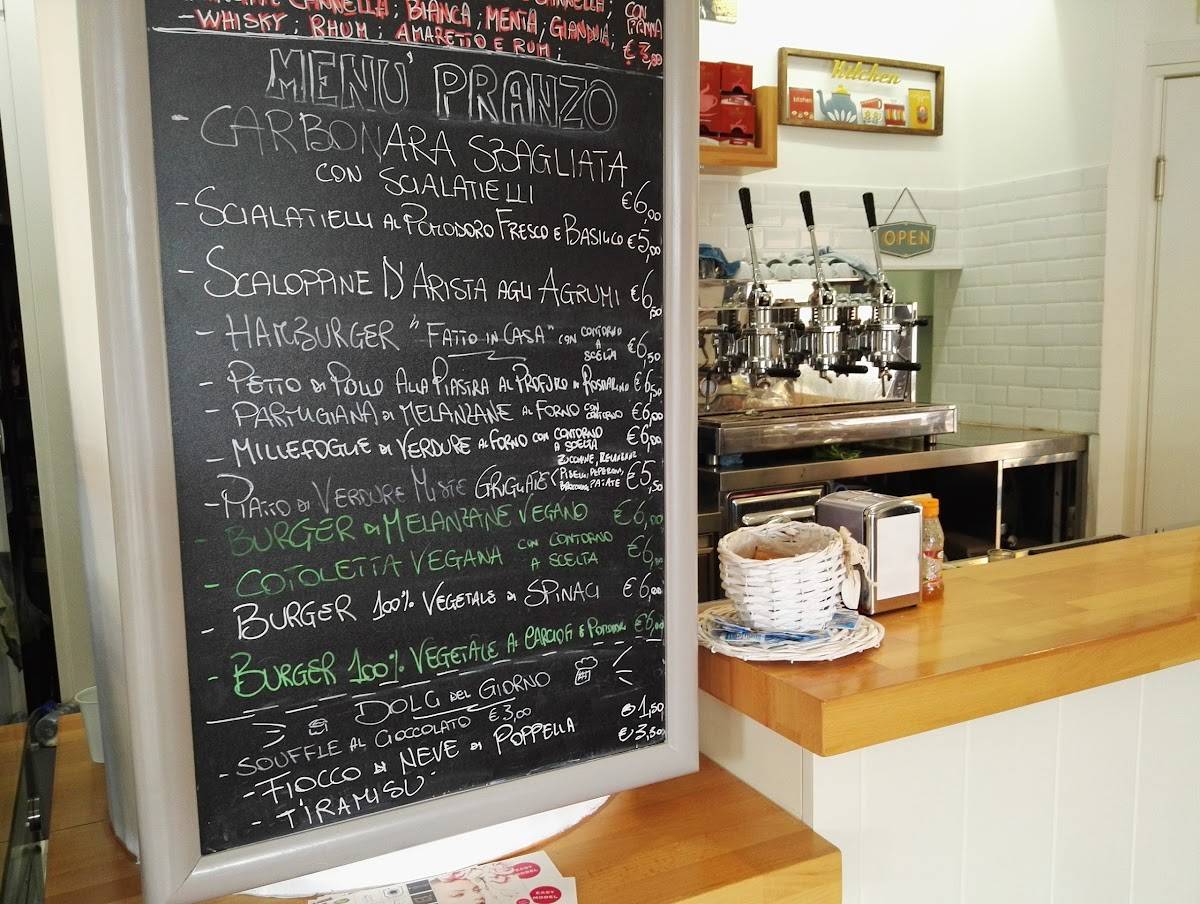 CANNELLA; BIANCA; MENTA, GIANDUIA; CON PANNA
- WHISKY; RHUM; AMARETTO E RUM; € 3,00
MENU' PRANZO
- CARBONARA SBAGLIATA
CON SCIALATIELLI €6,00
- SCIALATIELLI AL POMODORO FRESCO E BASILICO €5,00
- SCALOPPINE D'ARISTA AGLI AGRUMI €6,50
- HAMBURGER "FATTO IN CASA" CON CONTORNO A SCELTA €6,50
- PETTO DI POLLO ALLA PIASTRA AL PROFUMO DI ROSMARINO €6,50
- PARMIGIANA DI MELANZANE AL FORNO CON CONTORNO €6,00
- MILLEFOGLIE DI VERDURE AL FORNO CON CONTORNO A SCELTA €6,00
- PIATTO DI VERDURE MISTE GRIGLIATE (ZUCCHINE, MELANZANE, PISELLI, PEPERONI, PATATE €5,50
- BURGER DI MELANZANE VEGANO €6,00
- COTOLETTA VEGANA CON CONTORNO A SCELTA €6,00
- BURGER 100% VEGETALE DI SPINACI €6,00
- BURGER 100% VEGETALE AI CARCIOFI E POMODORI €6,00
DOLCI DEL GIORNO
- SOUFFLE AL CIOCCOLATO €3,00
- FIOCCO DI NEVE DI POPPELLA €1,50
- TIRAMISU' €3,50
Kitchen
OPEN
EASY MODEL
EASY MODEL